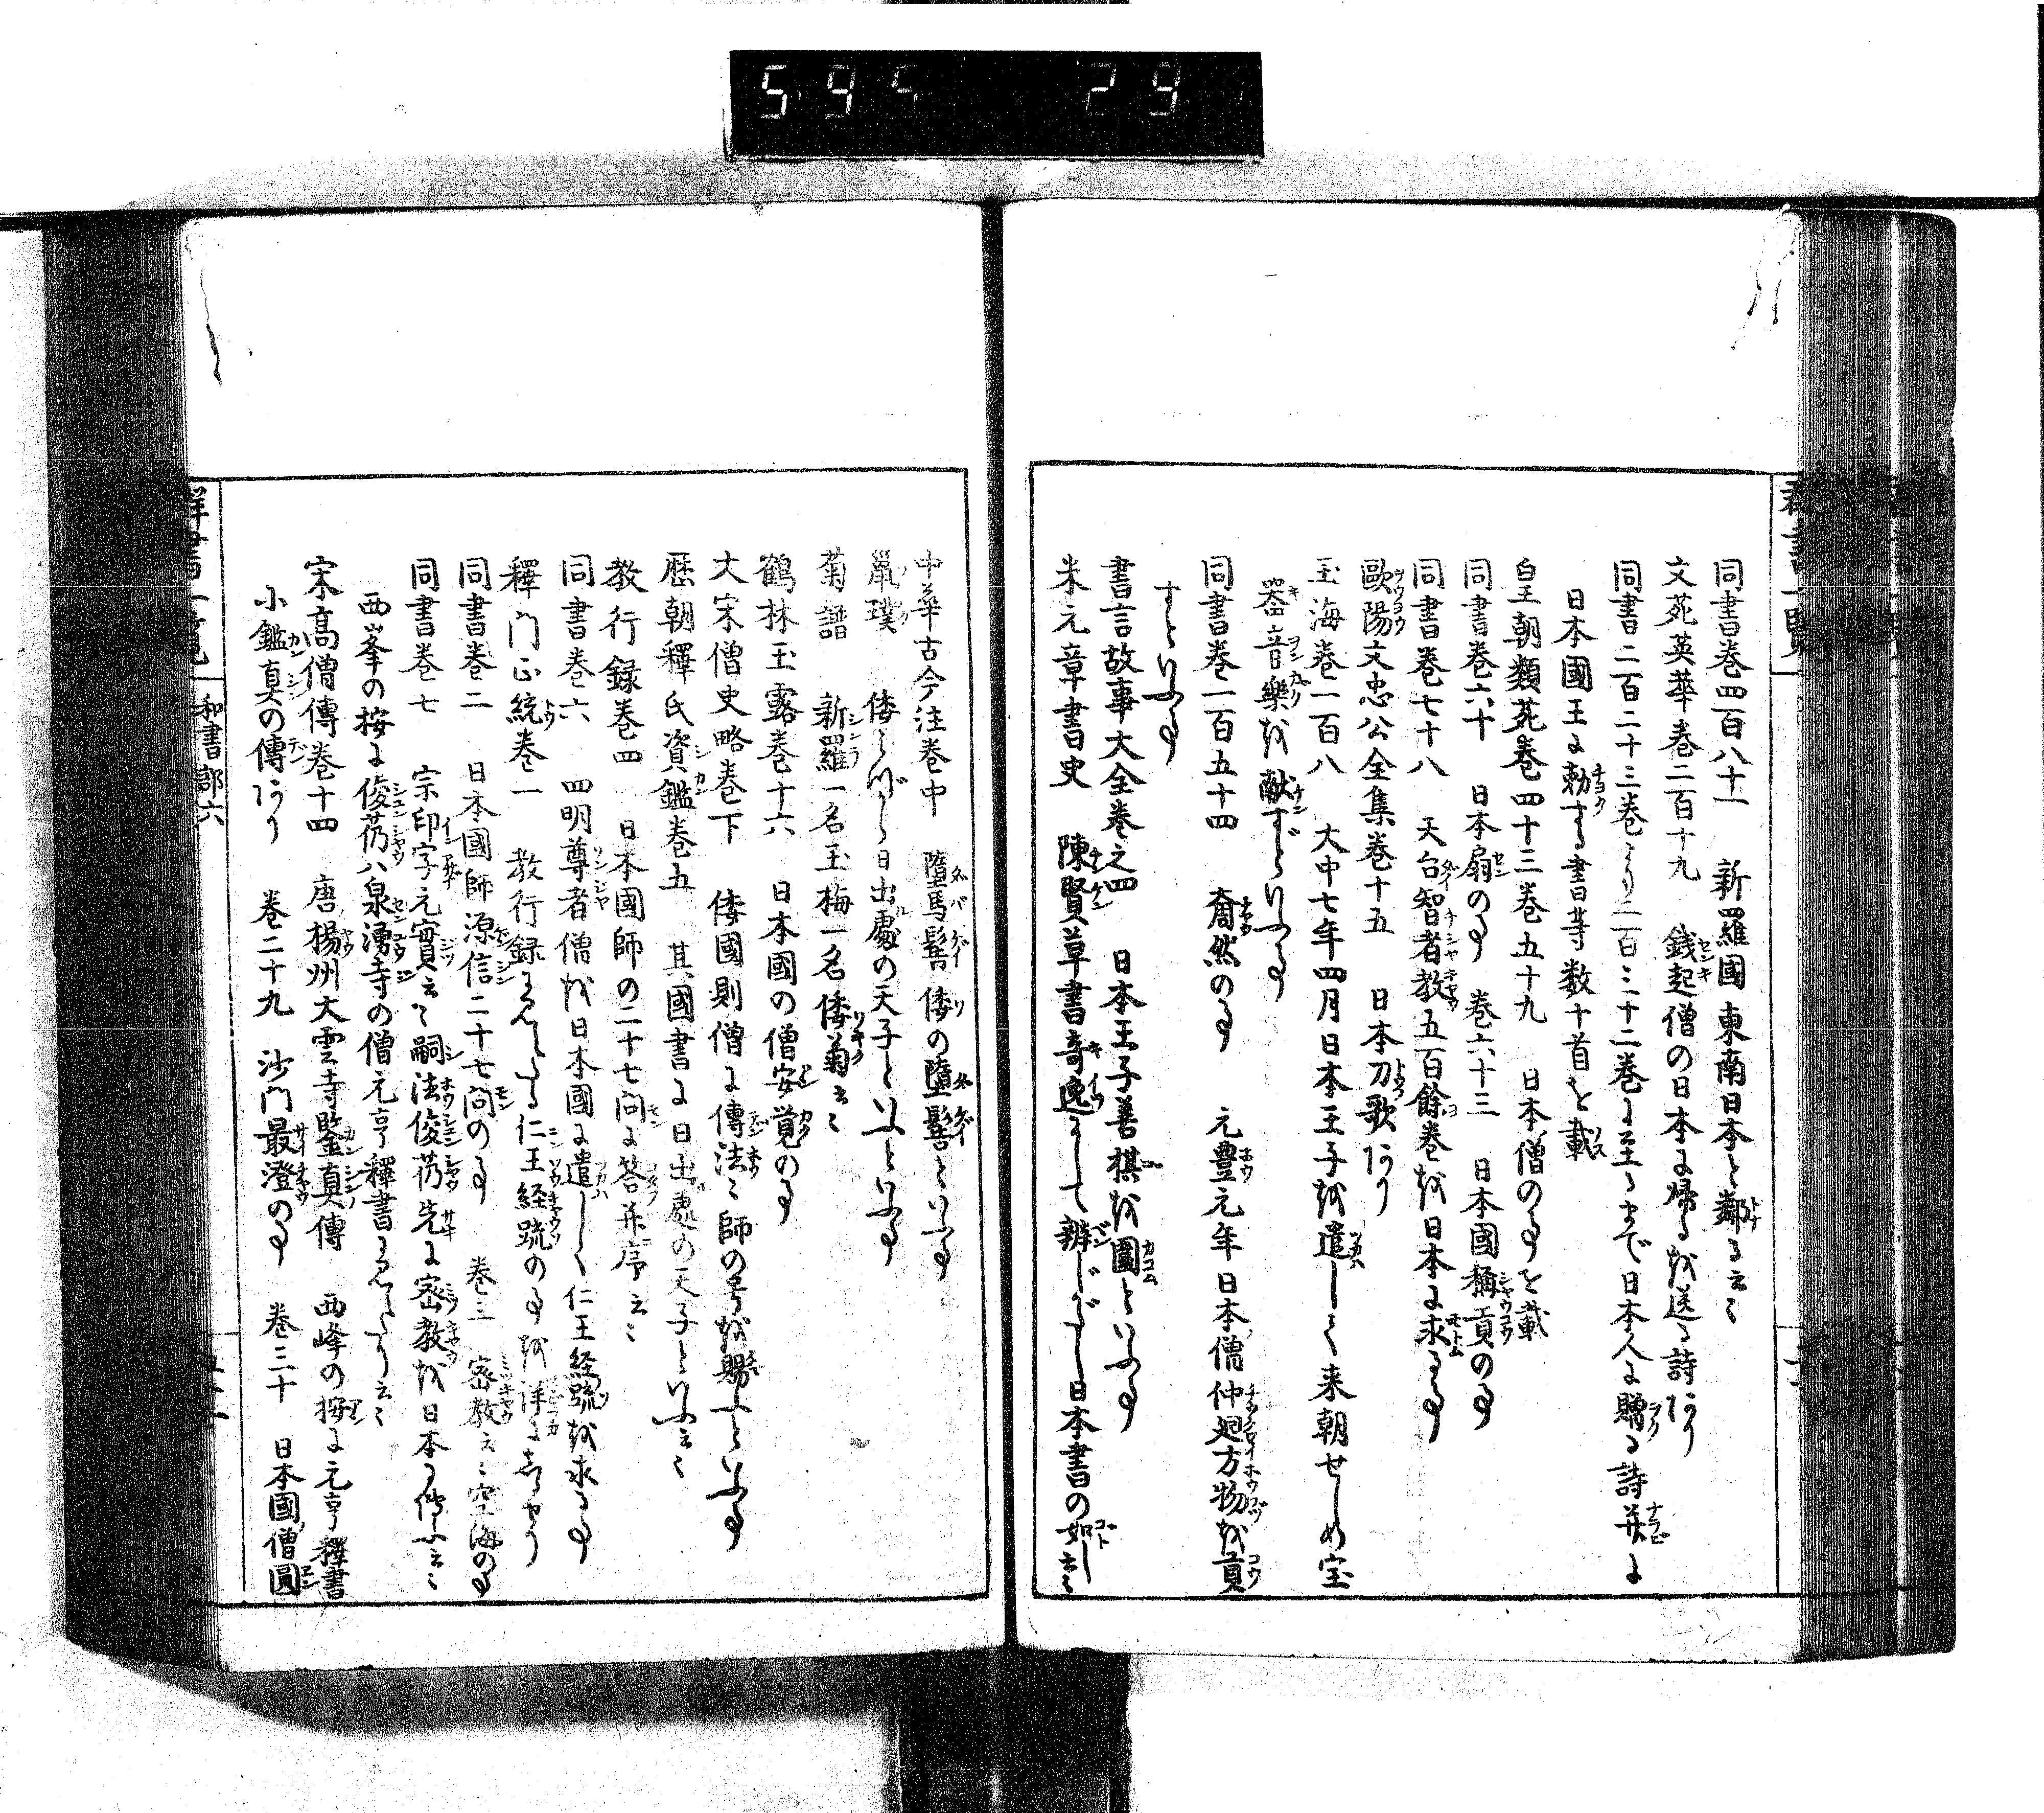 595 29
羣書一覽
同書巻四百八十一　新羅國東南日本と鄰る云〻
文苑英華巻二百十九　銭起僧の日本に帰るを送る詩あり
同書二百二十三巻より二百三十二巻に至るまで日本人に贈る詩并に
日本國王に勅する書等数十首を載
皇朝類苑巻四十三巻五十九　日本僧の事を載
同書巻六十　日本扇の事　巻六十三　日本國稱貢の事
同書巻七十八　天台智者教五百餘巻を日本に求る事
歐陽文忠公全集巻十五　日本刀歌あり
玉海巻一百八　大中七年四月日本王子を遣しく来朝せしめ宝
器音樂を献ずといふ事
同書巻一百五十四　奝然の事　元豊元年日本僧仲廻方物を貢
すといふ事
書言故事大全巻之四　日本王子善棋を圍といふ事
米元章書史　陳賢草書奇逸にして辨じがたし日本書の如し云〻
中華古今注巻中　墮馬髻倭の墮髻といふ事
鼠璞　倭みづから日出處の天子といふといふ事
菊譜　新羅一名玉梅一名倭菊云〻
鶴林玉露巻十六　日本國の僧安覚の事
大宋僧史略巻下　倭國則僧に傳法〻師の号を賜ふといふ事
歴朝釋氏資鑑巻五　其國書に日出處の天子といふ云〻
教行録巻四　日本國師の二十七問に答并序云〻
同書巻六　四明尊者僧を日本國に遣しく仁王経疏を求る事
釋門正統巻一　教行録にみえたる仁王経疏の事を詳に
同書巻二　日本國師源信二十七問の事　巻三　密教云〻空海の事
同書巻七　宗印字元實云〻嗣法俊芿先に密教を日本に傳ふ云〻
西峯の按に俊芿ハ泉湧寺の僧元亨釋書にみえたり云〻
宋高僧傳巻十四　唐揚州大雲寺鑒真傳　西峰の按に元亨釋書
小鑑真の傳あり　巻二十九　沙門最澄の事　巻三十　日本國僧圓
羣書一覧　和書部六